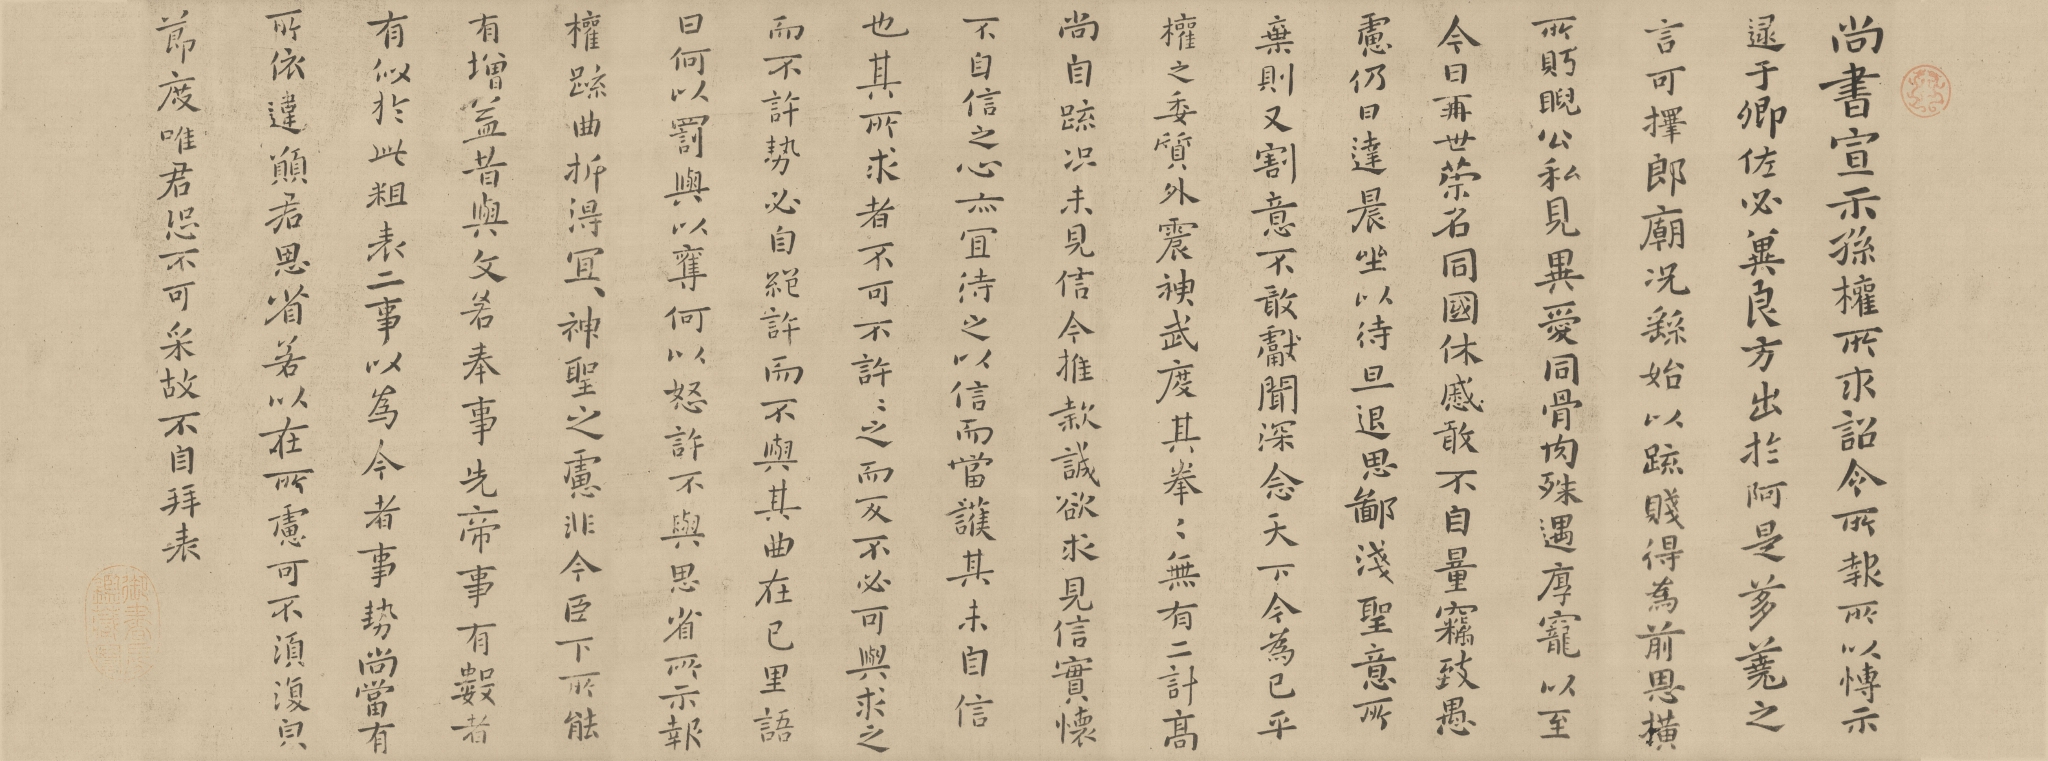 尚書宣示孫權所求詔令所報所以博示
逮于卿佐必冀良方出於阿是芻蕘之
言可擇郎廟況繇始以疏賤得為前恩橫
所眄睨公私見異愛同骨肉殊遇厚寵以至
今日再世榮名同國休慼敢不自量竊致愚
慮仍日達晨坐以待旦退思鄙淺聖意所
棄則又割意不敢獻聞深念天下今為已平
權之委質外震神武度其拳〻無有二計高
尚自疏況未見信今推款誠欲求見信實懷
不自信之心亦宜待之以信而當護其未自信
也其所求者不可不許〻之而反不必可與求之
而不許勢必自絕許而不與其曲在己里語
曰何以罰與以奪何以怒許不與思省所示報
權疏曲折得宜神聖之慮非今臣下所能
有增益昔與文若奉事先帝事有數者
有似於此粗表二事以為今者事勢尚當有
所依違願君思省若以在所慮可不須復貌
節度唯君恐不可采故不自拜表